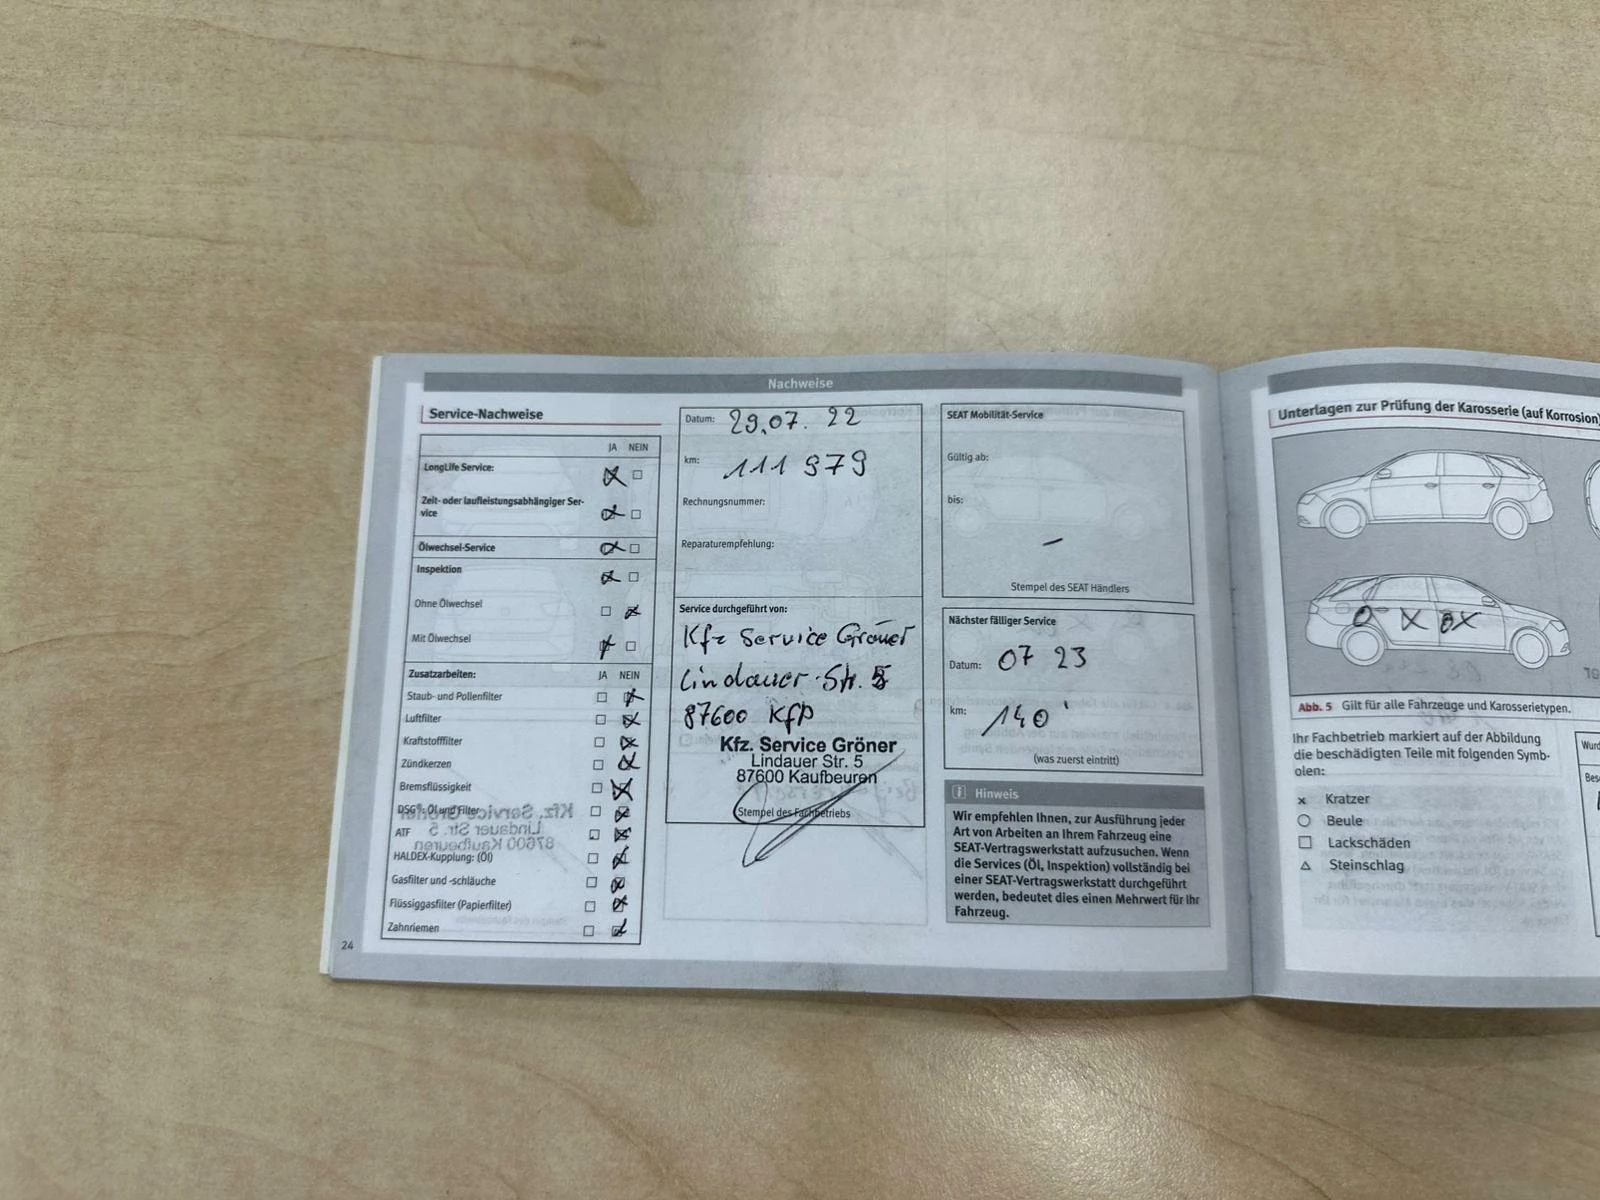 Nachweise
Service-Nachweise
JA NEIN
LongLife Service:
Zeit- oder laufleistungsabhängiger Ser-
vice
Ölwechsel-Service
Inspektion
Ohne Ölwechsel
Mit Ölwechsel
Zusatzarbeiten: JA NEIN
Staub- und Pollenfilter
Luftfilter
Kraftstofffilter
Zündkerzen
Bremsflüssigkeit
DSG®: Öl und Filter
ATF
HALDEX-Kupplung: (Öl)
Gasfilter und -schläuche
Flüssiggasfilter (Papierfilter)
Zahnriemen
24
Datum: 29.07. 22
km: 111 979
Rechnungsnummer:
Reparaturempfehlung:
Service durchgeführt von:
Kfz Service Gröner
Lindauer Str. 5
87600 Kfb
Kfz. Service Gröner
Lindauer Str. 5
87600 Kaufbeuren
Stempel des Fachbetriebs
SEAT Mobilität-Service
Gültig ab:
bis:
Stempel des SEAT Händlers
Nächster fälliger Service
Datum: 07 23
km: 140'
(was zuerst eintritt)
Hinweis
Wir empfehlen Ihnen, zur Ausführung jeder
Art von Arbeiten an Ihrem Fahrzeug eine
SEAT-Vertragswerkstatt aufzusuchen. Wenn
die Services (Öl, Inspektion) vollständig bei
einer SEAT-Vertragswerkstatt durchgeführt
werden, bedeutet dies einen Mehrwert für Ihr
Fahrzeug.
Unterlagen zur Prüfung der Karosserie (auf Korrosion)
Abb. 5 Gilt für alle Fahrzeuge und Karosserietypen.
Ihr Fachbetrieb markiert auf der Abbildung
die beschädigten Teile mit folgenden Symb-
olen:
Kratzer
Beule
Lackschäden
Steinschlag